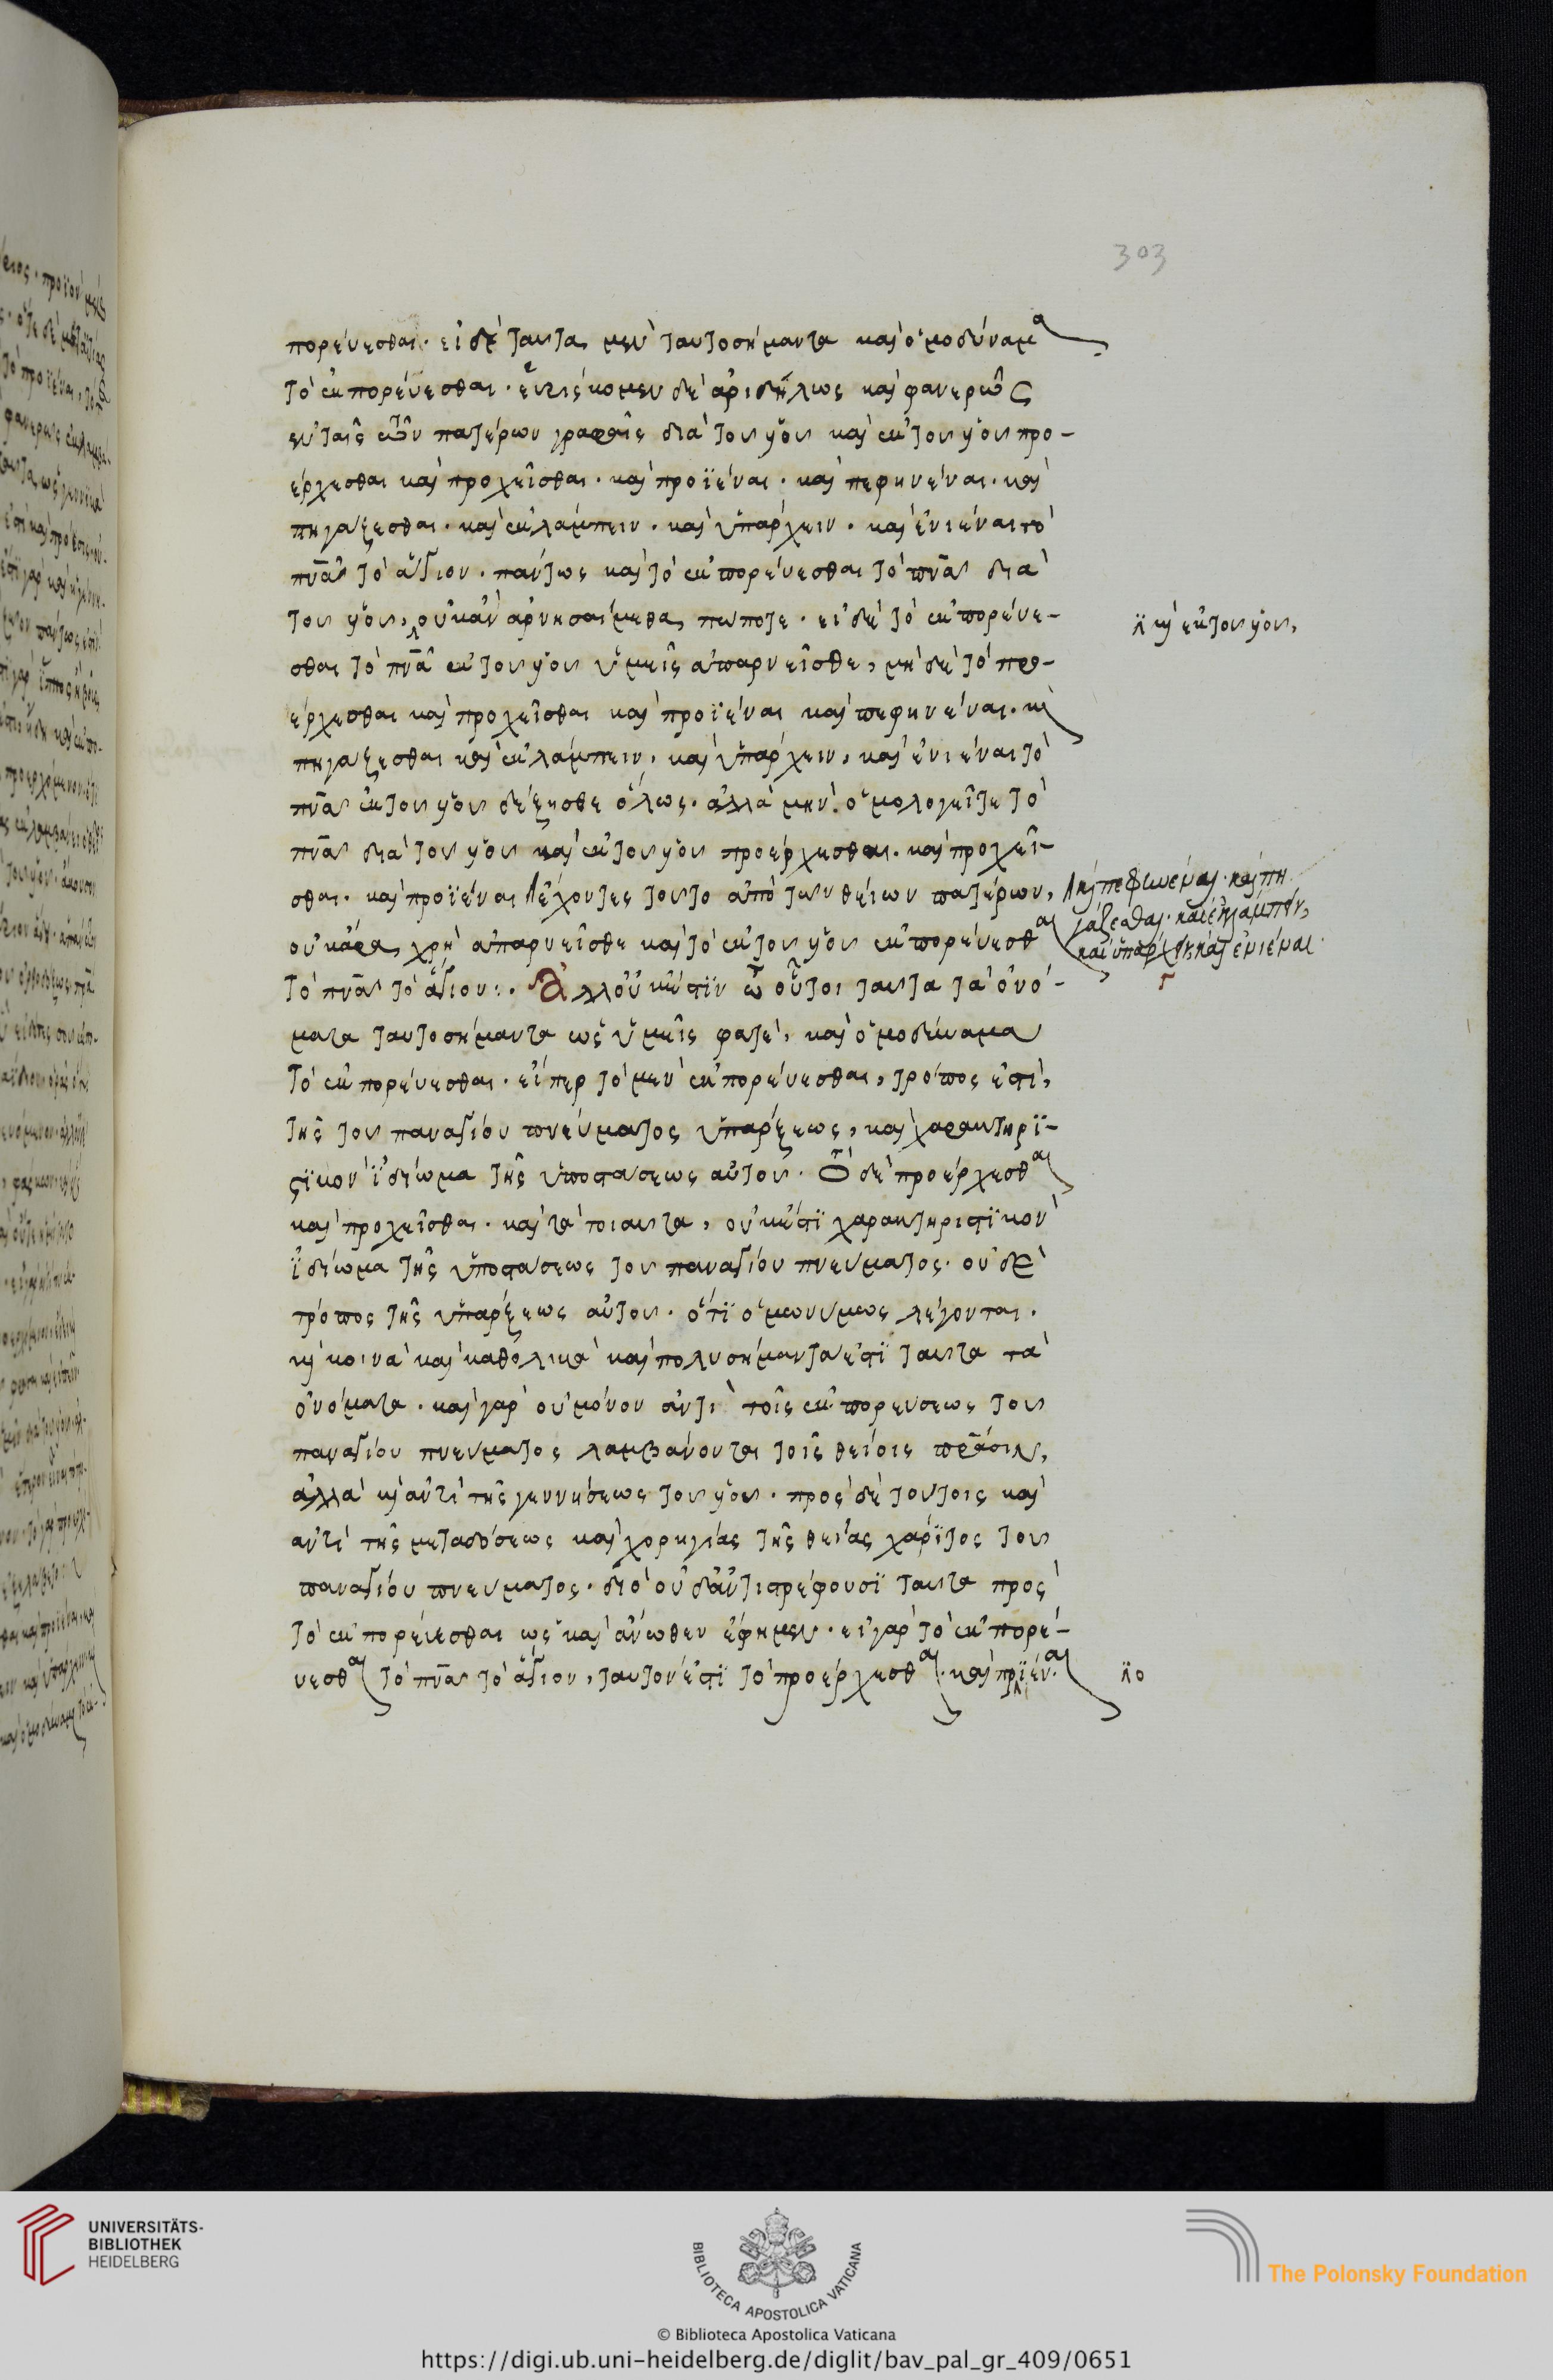 303
πορεύεσθαι· εἰ δὲ ταυτα μὲν ταυτοσήμαντα καὶ ὁμοδύναμα
τὸ ἐκπορέυεσθαι· ἑυρίσκομεν δὲ ἀριδήλως καὶ φανερῶς
εν ταῖς τῶν πατέρων γραφαῖς διὰ του ὑου καὶ ἐκ του ὑου προ-
έρχεσθαι καὶ προχεῖσθαι· καὶ προϊέναι· καὶ πεφηνέναι· καὶ
πηγάζεσθαι· καὶ ἐκλάμπειν· καὶ ὑπάρχειν· καὶ ἐνιέναι τὸ
πνᾶ τὸ ἅγιον· πάντως καὶ τὸ ἐκπορέυεσθαι τὸ πνᾶ διὰ
του ὑου, οὐκ ἂν ἀρνησαίμεθα πωποτε· εἰ δὲ τὸ ἐκπορέυε-
σθαι τὸ πνᾶ ἐκ του ὑου ὑμεῖς ἀπαρνεῖσθε, μὴ δὲ τὸ προ-
έρχεσθαι καὶ προχεῖσθαι καὶ προϊέναι καὶ πεφηνέναι· καὶ
πηγάζεσθαι καὶ ἐκλάμπειν, καὶ ὑπάρχειν, καὶ ἐνιέναι τὸ
πνᾶ ἐκ του ὑου δέξησθε ὅλως· ἀλλὰ μὴν ὁμολογεῖτε τὸ
πνᾶ διὰ του ὑου καὶ ἐκ του ὑου προέρχεσθαι· καὶ προχεῖ-
σθαι· καὶ προϊέναι ἔχοντες τουτο ἀπὸ των θείων πατέρων,
οὐκ ἄρα χρὴ ἀπαρνεῖσθε καὶ τὸ ἐκ του ὑου ἐκπορέυεσθαι
τὸ πνᾶ τὸ ἅγιον:· Ἀλλ' οὐκ ἔστιν ὦ οὗτοι ταυτα τὰ ὀνό-
ματα ταυτοσήμαντα ὡς ὑμεῖς φατὲ, καὶ ὁμοδύναμα
τὸ ἐκπορέυεσθαι· εἴπερ τὸ μὲν ἐκπορέυεσθαι, τρόπος ἐστὶ,
τῆς του παναγίου πνέυματος ὑπάρξεως, καὶ χαρακτηρϊ-
στϊκὸν ἰδίωμα τῆς ὑποστάσεως αὐτου· τὸ δὲ προέρχεσθαι
καὶ προχεῖσθαι· καὶ τὰ τοιαυτα, οὐκ ἔστϊ χαρακτηριστϊκὸν
ἰδίωμα τῆς ὑποστάσεως του παναγίου πνευματος· οὐδὲ
τρόπος τῆς ὑπάρξεως αὐτου· ὅτϊ ὁμωνυμως λέγονται·
καὶ κοινὰ καὶ καθολικὰ καὶ πολυσήμαντα ἐστϊ ταυτα τὰ
ὀνόματα· καὶ γὰρ οὐ μόνον ἀντὶ τῆς ἐκπορευσεως του
παναγίου πνευματος λαμβάνονται τοῖς θείοις πρᾶσιν,
ἀλλὰ καὶ ἀντὶ τῆς γεννήσεως του ὑου· πρὸς δὲ τουτοις καὶ
ἀντὶ τῆς μεταδόσεως καὶ χορηγίας τῆς θείας χάρϊτος του
παναγίου πνευματος· διὸ οὐδ' ἀντιστρέφουσϊ ταυτα πρὸς
τὸ ἐκπορέυεσθαι ὡς καὶ ἄνωθεν ἔφημεν· εἰ γὰρ τὸ ἐκπορέ-
υεσθαι τὸ πνᾶ τὸ ἅγιον, ταυτόν ἐστϊ τὸ προέρχεσθαι· καὶ πρϊέναι·
καὶ ἐκ του ὑου,
καὶ πεφηνέναι· καὶ πη-
γάζεσθαι· καὶ ἐκλάμπειν,
καὶ ὑπάρχειν καὶ ἐνιέναι·
ο
UNIVERSITÄTS-
BIBLIOTHEK
HEIDELBERG
BIBLIOTECA APOSTOLICA VATICANA
The Polonsky Foundation
© Biblioteca Apostolica Vaticana
https://digi.ub.uni-heidelberg.de/diglit/bav_pal_gr_409/0651